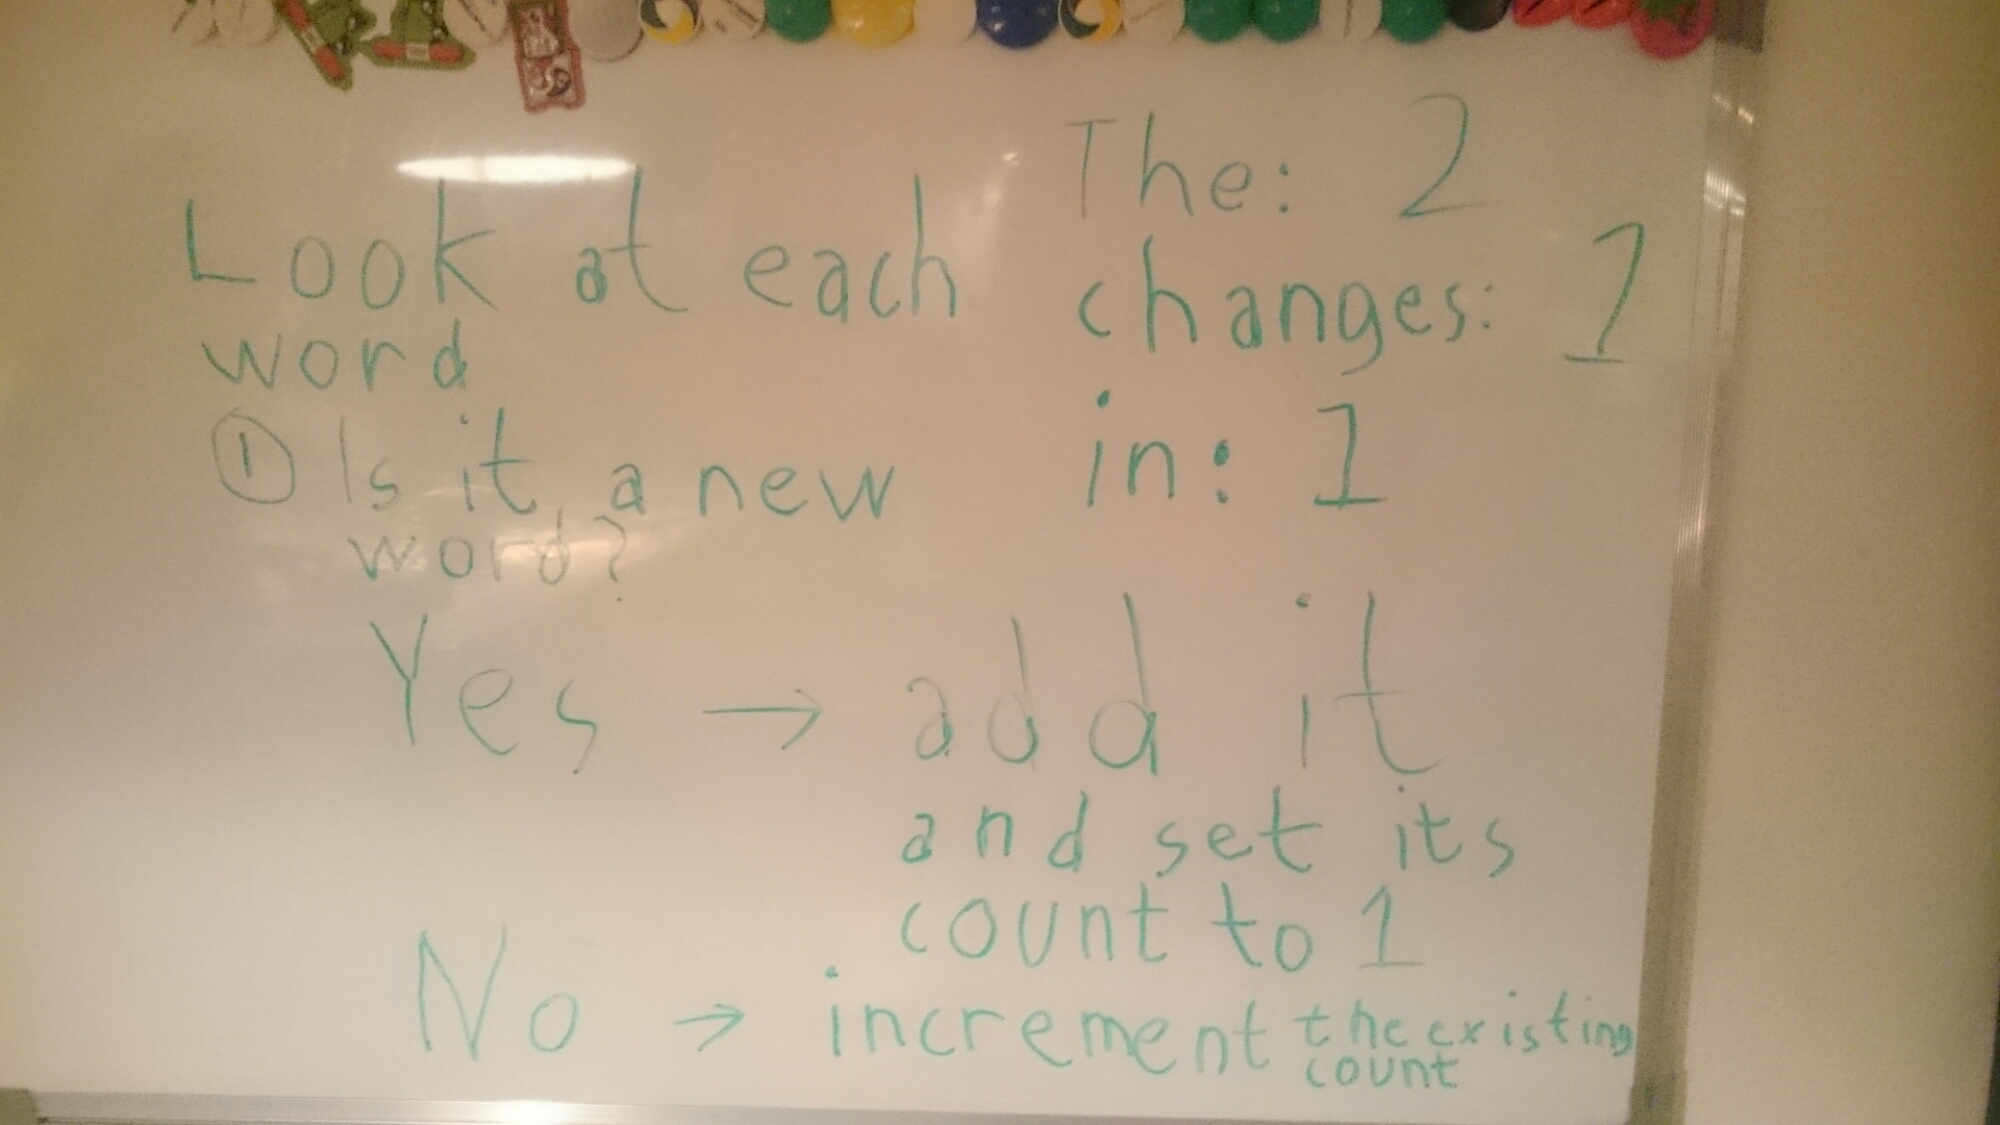 Look at each
word
① Is it a new
word?
The: 2
changes: 1
in: 1
Yes → add it
and set its
count to 1
No → increment the existing
count